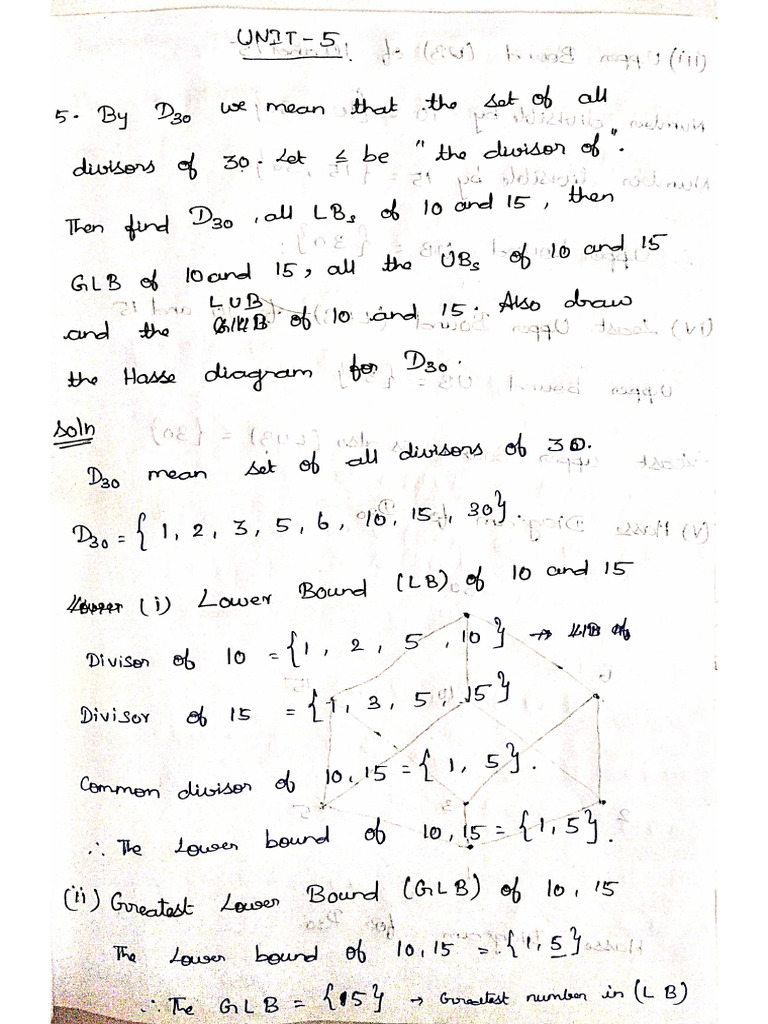 UNIT-5
5. By D30 we mean that the set of all
divisors of 30. Let ≤ be "the divisor of".
Then find D30, all LBs of 10 and 15, then
GLB of 10 and 15, all the UBs of 10 and 15
and the LUB of 10 and 15. Also draw
the Hasse diagram for D30.
Soln
D30 mean set of all divisors of 30.
D30 = {1, 2, 3, 5, 6, 10, 15, 30}.
(i) Lower Bound (LB) of 10 and 15
Divisor of 10 = {1, 2, 5, 10} →
Divisor of 15 = {1, 3, 5, 15}
Common divisor of 10, 15 = {1, 5}.
∴ The Lower bound of 10, 15 = {1, 5}.
(ii) Greatest Lower Bound (GLB) of 10, 15
The Lower bound of 10, 15 = {1, 5}
∴ The GLB = {5} → Greatest number in (LB)